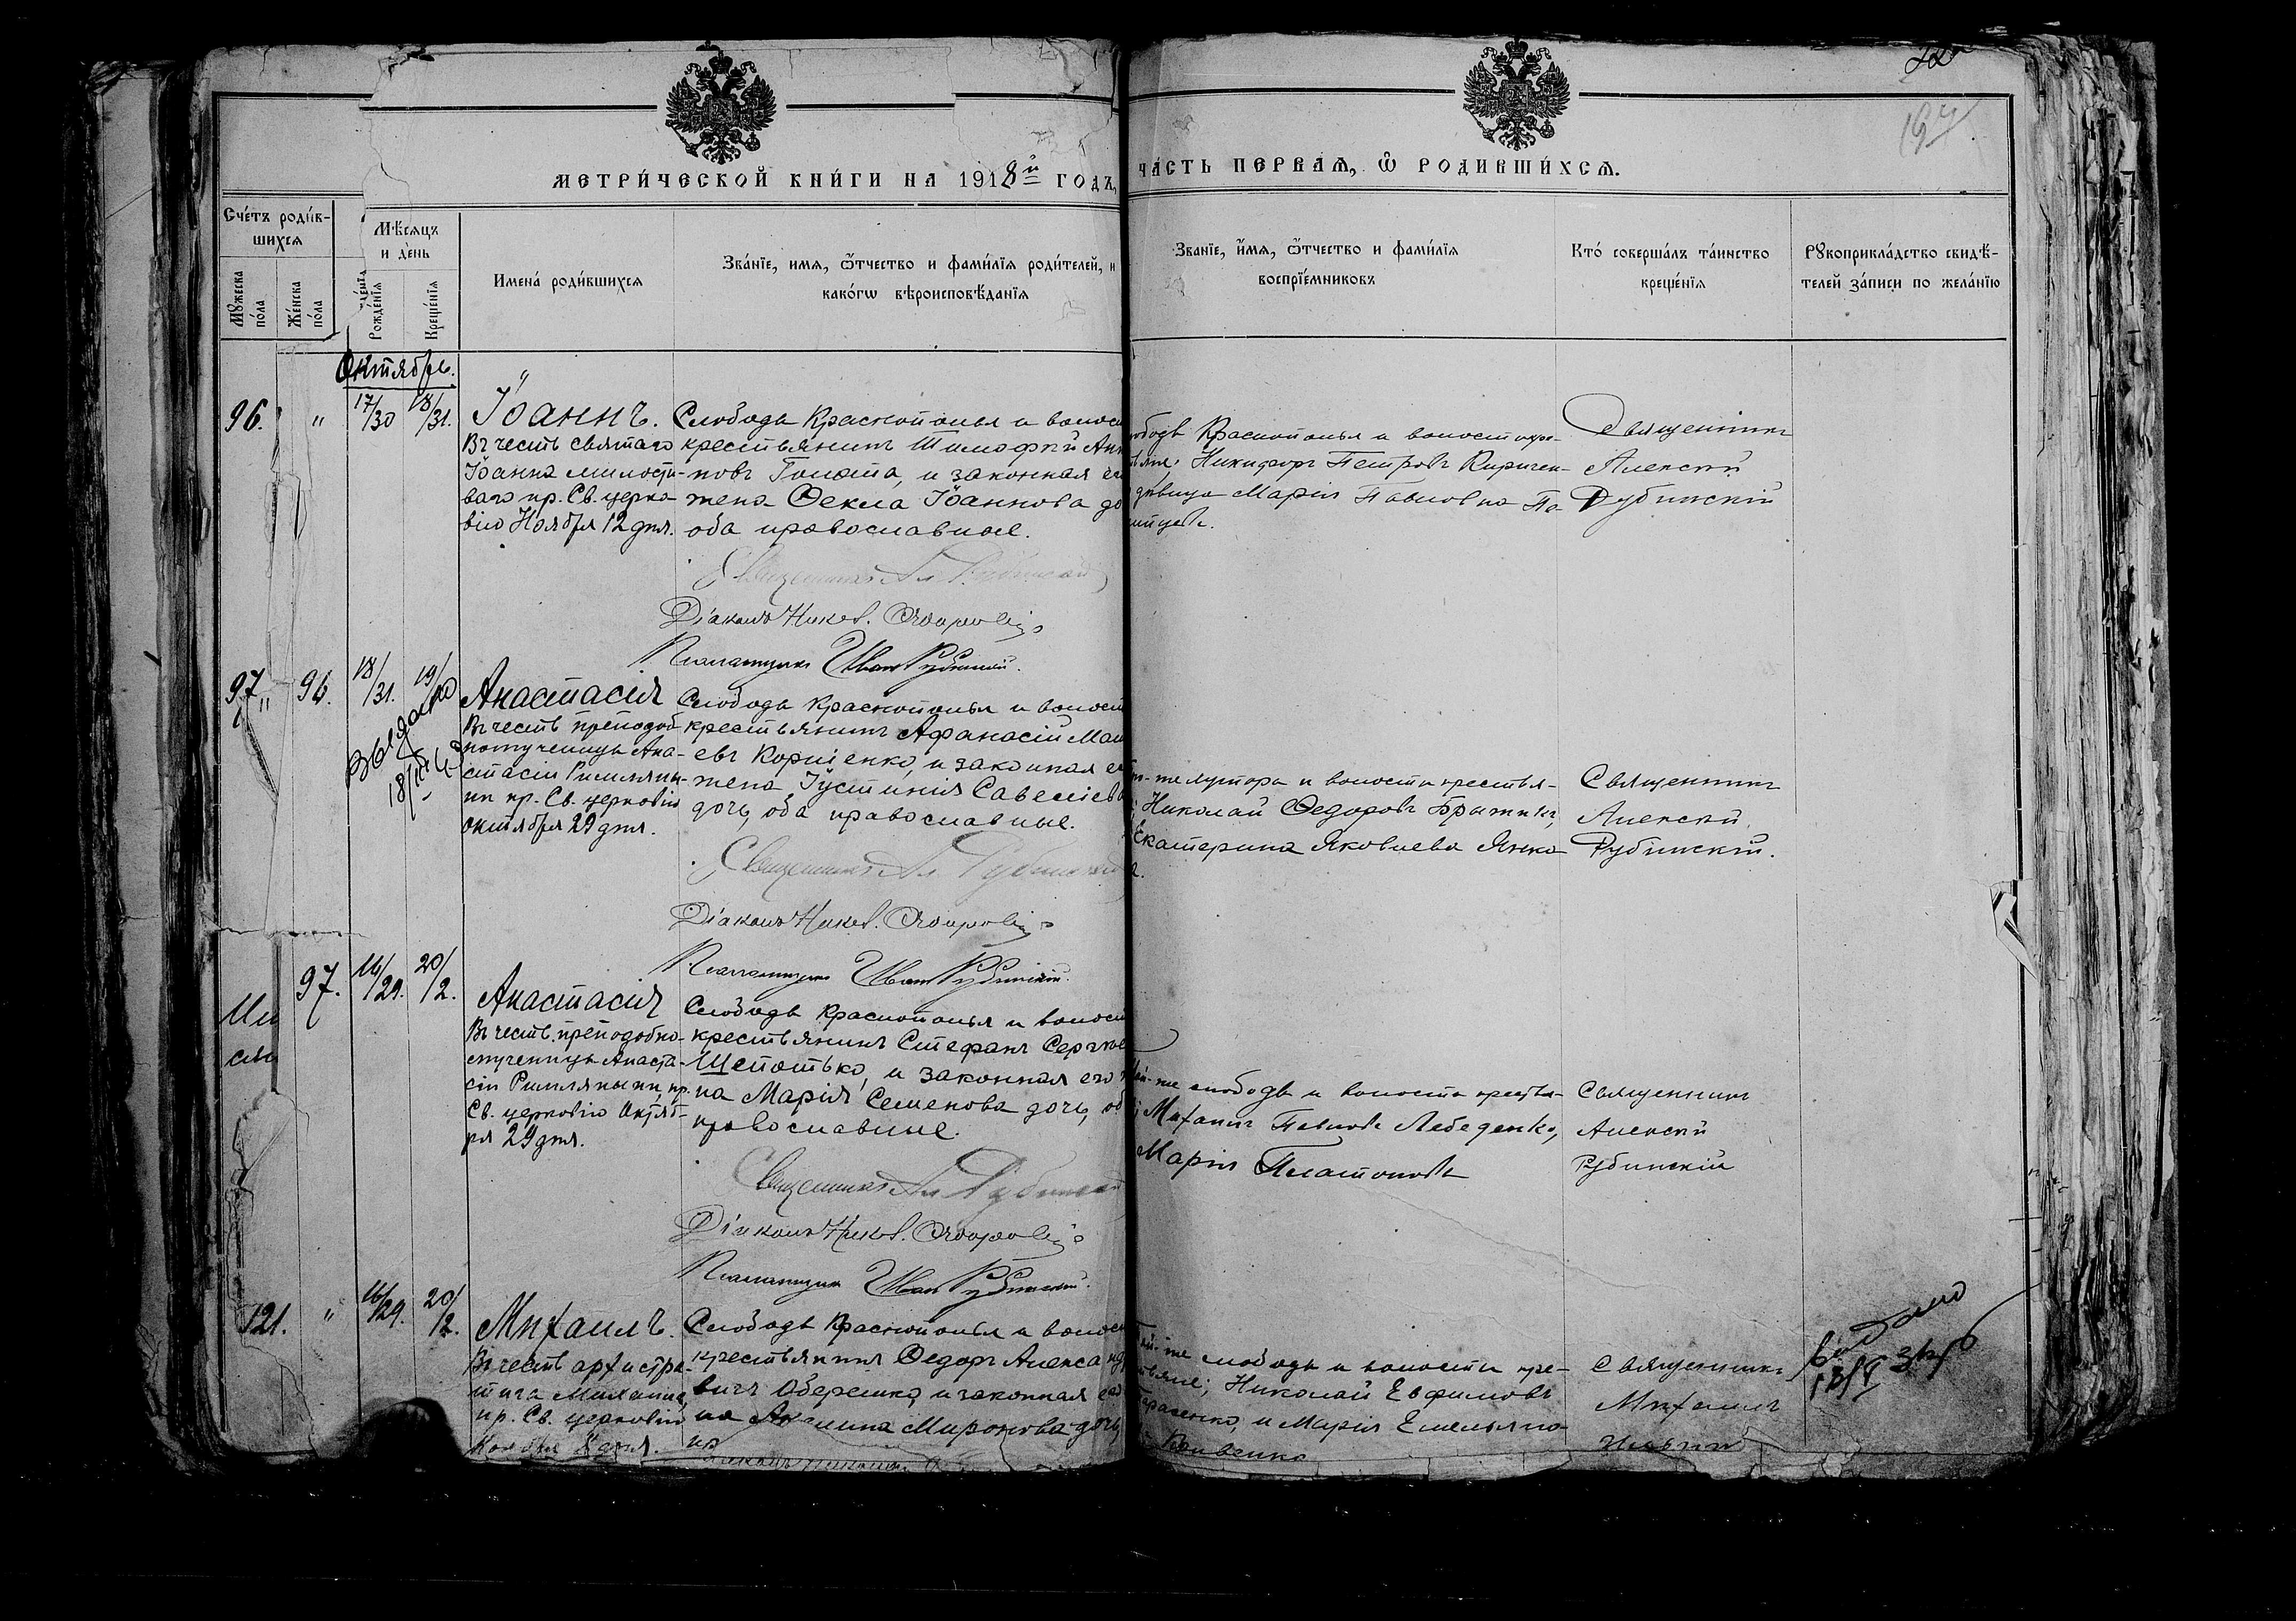 МЕТРИ́ЧЕСКОЙ КНИ́ГИ НА 1918й ГОДЪ,
ЧА́СТЬ ПЕРВАѦ, Ѽ РОДИВШИ́ХСѦ.
194
Сче́тъ роди́в-
шихсѧ
Мꙋжеска
по́ла
Же́нска
по́ла
Мѣ́сѧцъ
и де́нь
Рожде́нїѧ
Креще́нїѧ
Имена̀ роди́вшихсѧ
Зва́нїе, имѧ, ѻ҆́тчество и фами́лїѧ роди́телей, и
како́гѡ вѣроисповѣ́данїѧ
Зва́нїе, и҆́мѧ, ѻ҆́тчество и фами́лїѧ
воспрїе́мниковъ
Кто́ соверша́лъ та́инство
креще́нїѧ
Рꙋкоприкла́дство свидѣ́-
телей за́писи по жела́нїю
Октябрь.
96.
"
17/30
18/31.
Іоаннъ.
Въ честь святаго
Іоанна милости-
ваго пр. Св. церко-
вію Ноября 12 дня.
Слободы Краснополья и волос
крестьянинъ Тимофей
повъ Голота, и законная ег
жена Ѳекла Іоаннова до
оба православные.
Священникъ Ал. Рубинскій
Діаконъ Никол.
Псаломщикъ Иван Рубинский.
Краснополья и волости кре-
Никифоръ Петровъ Киричен-
дѣвица Марія Павловна По-
Священникъ
Алексій
Рубинскій
97
"
96.
18/31.
19/
Выдано
18/
Анастасія
Въ честь преподоб
номученицы Ана-
стасіи Римляны-
ни пр. Св. церковію
октября 29 дня.
Слободы Краснополья и волост
крестьянинъ Афанасій Мат
евъ Корніенко, и законная ег
жена Іустинія Савеліева
дочь, оба православные.
Священникъ Ал. Рубинскій
Діаконъ Никол.
Псаломщикъ Иван Рубинскій.
же хутора и волости крестья-
Николай Ѳедоровъ Брыжикъ,
Екатерина Яковлева Янко
Священникъ
Алексій
Рубинскій.
97.
16/29.
20/2.
Анастасія
Въ честь преподобно-
мученицы Анаста-
сіи Римляныни, пр.
Св. церковію Октяб-
ря 29 дня.
Слободы Краснополья и волост
крестьянинъ Стефанъ Сергѣе
Щепотько, и законная его
на Марія Семенова дочь, об
православные.
Священникъ Ал. Рубинскій
Діаконъ Никол.
Псаломщикъ Иван Рубинский.
же слободы и волости крестья-
Михаилъ Павловъ Лебеденко,
Марія Платонова
Священникъ
Алексій
Рубинскій
121.
"
16/29.
20/2.
Михаилъ.
Въ честь архистра-
тига Михаила,
пр. Св. церковію
Ноября 8 дня.
Слободы Краснополья и волос
крестьянинъ Ѳедоръ Александ
вичъ Оберемко, и законная его
на Акилина Миронова дочь,
же слободы и волости кре-
Николай Евфимовъ
Тарасенко, и Марія Емельяно-
Священникъ
Михаилъ